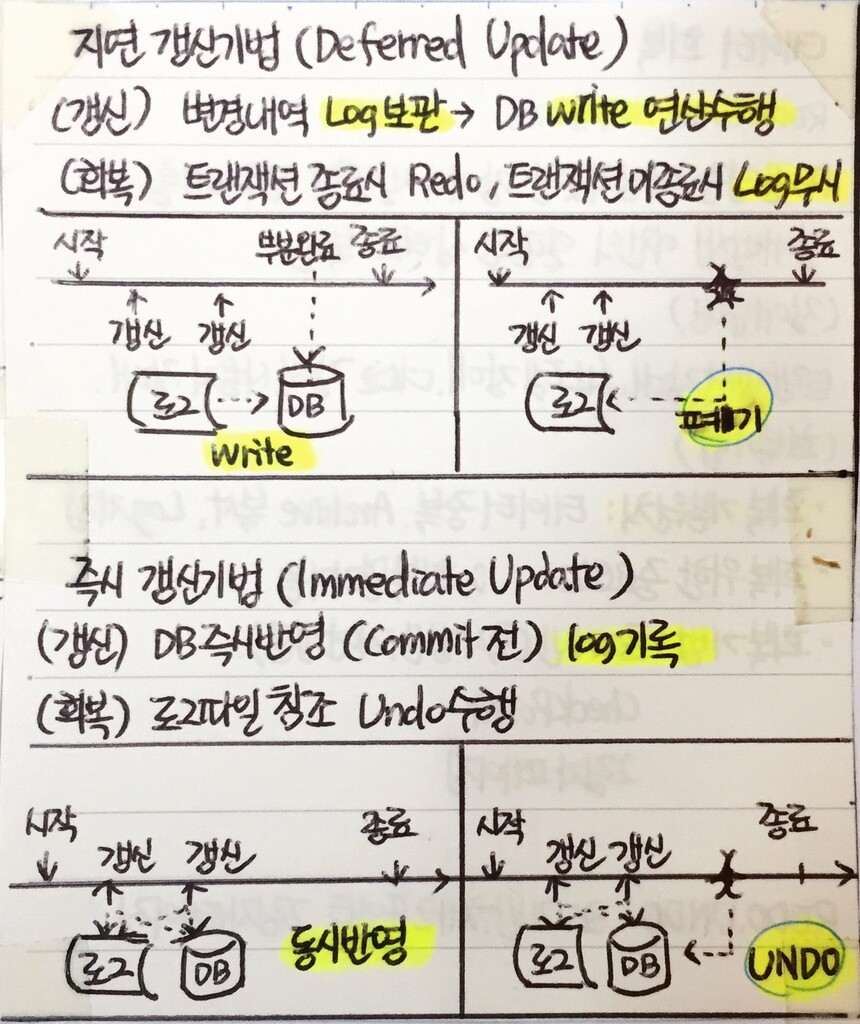 지연 갱신기법 (Deferred Update)
(갱신) 변경내역 Log보관→ DB write 연산수행
(회복) 트랜잭션 종료시 Redo, 트랜잭션 미종료시 Log무시
시작 부분완료 종료
갱신 갱신
로그 DB
write
시작 종료
갱신 갱신
로그 폐기
즉시 갱신기법 (Immediate Update)
(갱신) DB즉시반영 (Commit전) log기록
(회복) 로그파일 참조 Undo수행
시작 갱신 갱신 종료
로그 DB 동시반영
시작 갱신 갱신 종료
로그 DB UNDO